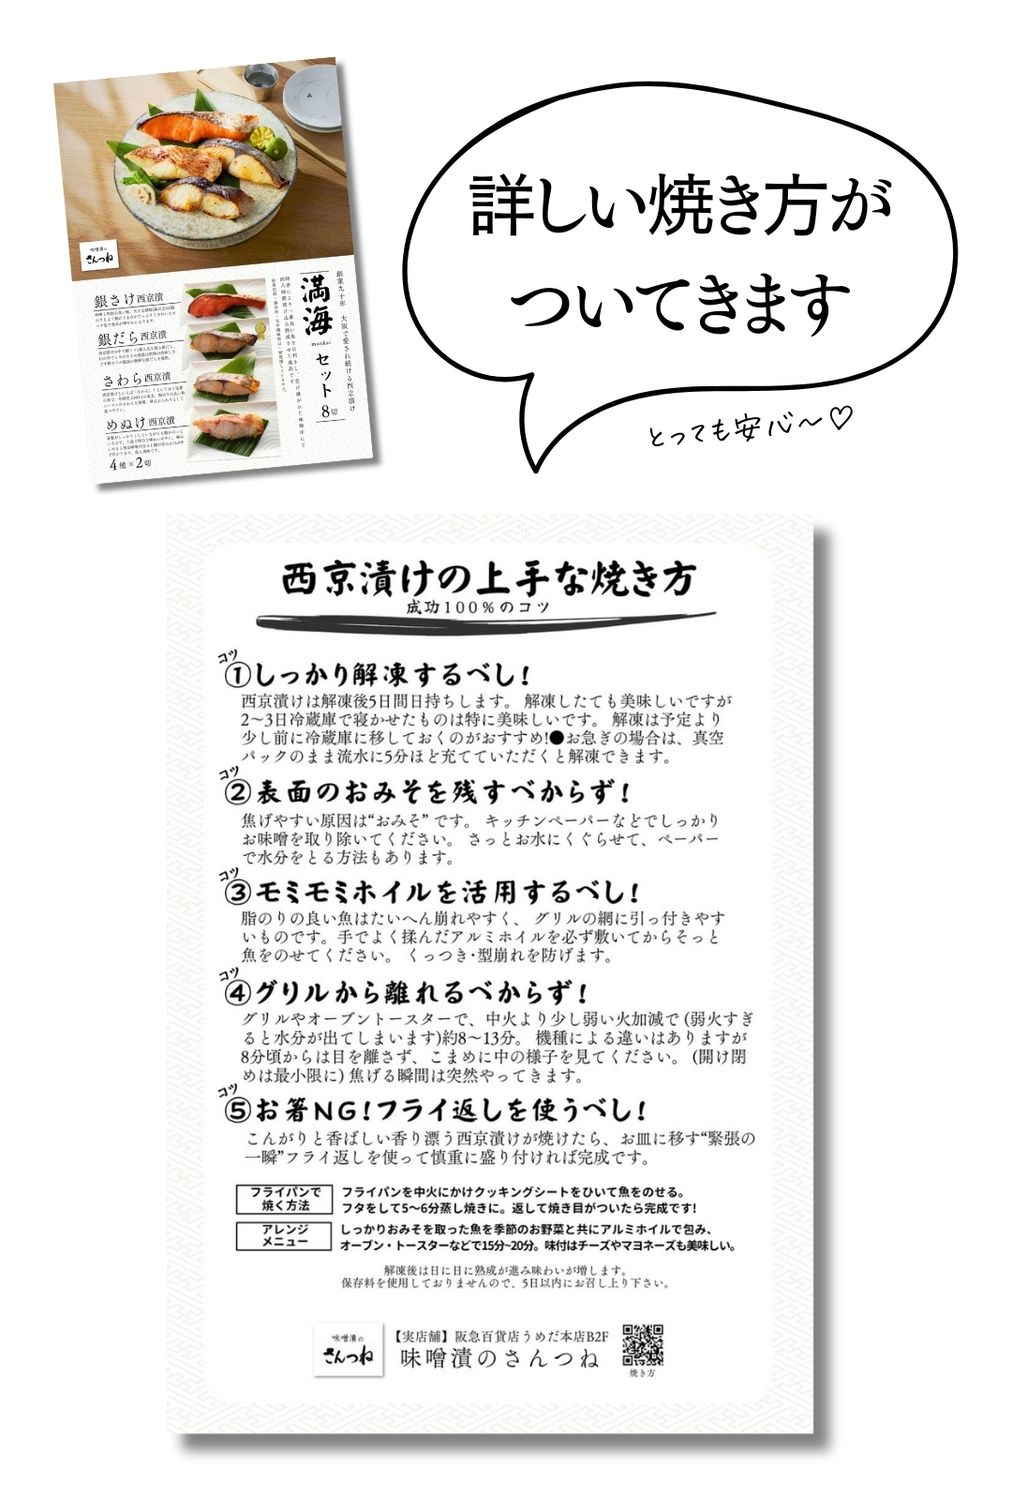 詳しい焼き方が
ついてきます
とっても安心〜♡
味噌漬の
さんつね
創業九十年 大阪で愛され続ける西京漬け
満海
mankai
セット
8切
銀さけ西京漬
銀だら西京漬
さわら西京漬
めぬけ西京漬
4種×2切
西京漬けの上手な焼き方
成功100%のコツ
コツ
①しっかり解凍するべし!
西京漬けは解凍後5日間日持ちします。 解凍したても美味しいですが
2〜3日冷蔵庫で寝かせたものは特に美味しいです。 解凍は予定より
少し前に冷蔵庫に移しておくのがおすすめ!●お急ぎの場合は、真空
パックのまま流水に5分ほど充てていただくと解凍できます。
コツ
②表面のおみそを残すべからず!
焦げやすい原因は“おみそ” です。 キッチンペーパーなどでしっかり
お味噌を取り除いてください。 さっとお水にくぐらせて、ペーパー
で水分をとる方法もあります。
コツ
③モミモミホイルを活用するべし!
脂のりの良い魚はたいへん崩れやすく、 グリルの網に引っ付きやす
いものです。手でよく揉んだアルミホイルを必ず敷いてからそっと
魚をのせてください。 くっつき・型崩れを防げます。
コツ
④グリルから離れるべからず!
グリルやオーブントースターで、中火より少し弱い火加減で (弱火すぎ
ると水分が出てしまいます)約8〜13分。 機種による違いはありますが
8分頃からは目を離さず、こまめに中の様子を見てください。 (開け閉
めは最小限に) 焦げる瞬間は突然やってきます。
コツ
⑤お箸NG!フライ返しを使うべし!
こんがりと香ばしい香り漂う西京漬けが焼けたら、お皿に移す“緊張の
一瞬”フライ返しを使って慎重に盛り付ければ完成です。
フライパンで
焼く方法
フライパンを中火にかけクッキングシートをひいて魚をのせる。
フタをして5〜6分蒸し焼きに。返して焼き目がついたら完成です!
アレンジ
メニュー
しっかりおみそを取った魚を季節のお野菜と共にアルミホイルで包み、
オーブン・トースターなどで15分~20分。味付はチーズやマヨネーズも美味しい。
解凍後は日に日に熟成が進み味わいが増します。
保存料を使用しておりませんので、5日以内にお召し上り下さい。
味噌漬の
さんつね
【実店舗】阪急百貨店うめだ本店B2F
味噌漬のさんつね
焼き方